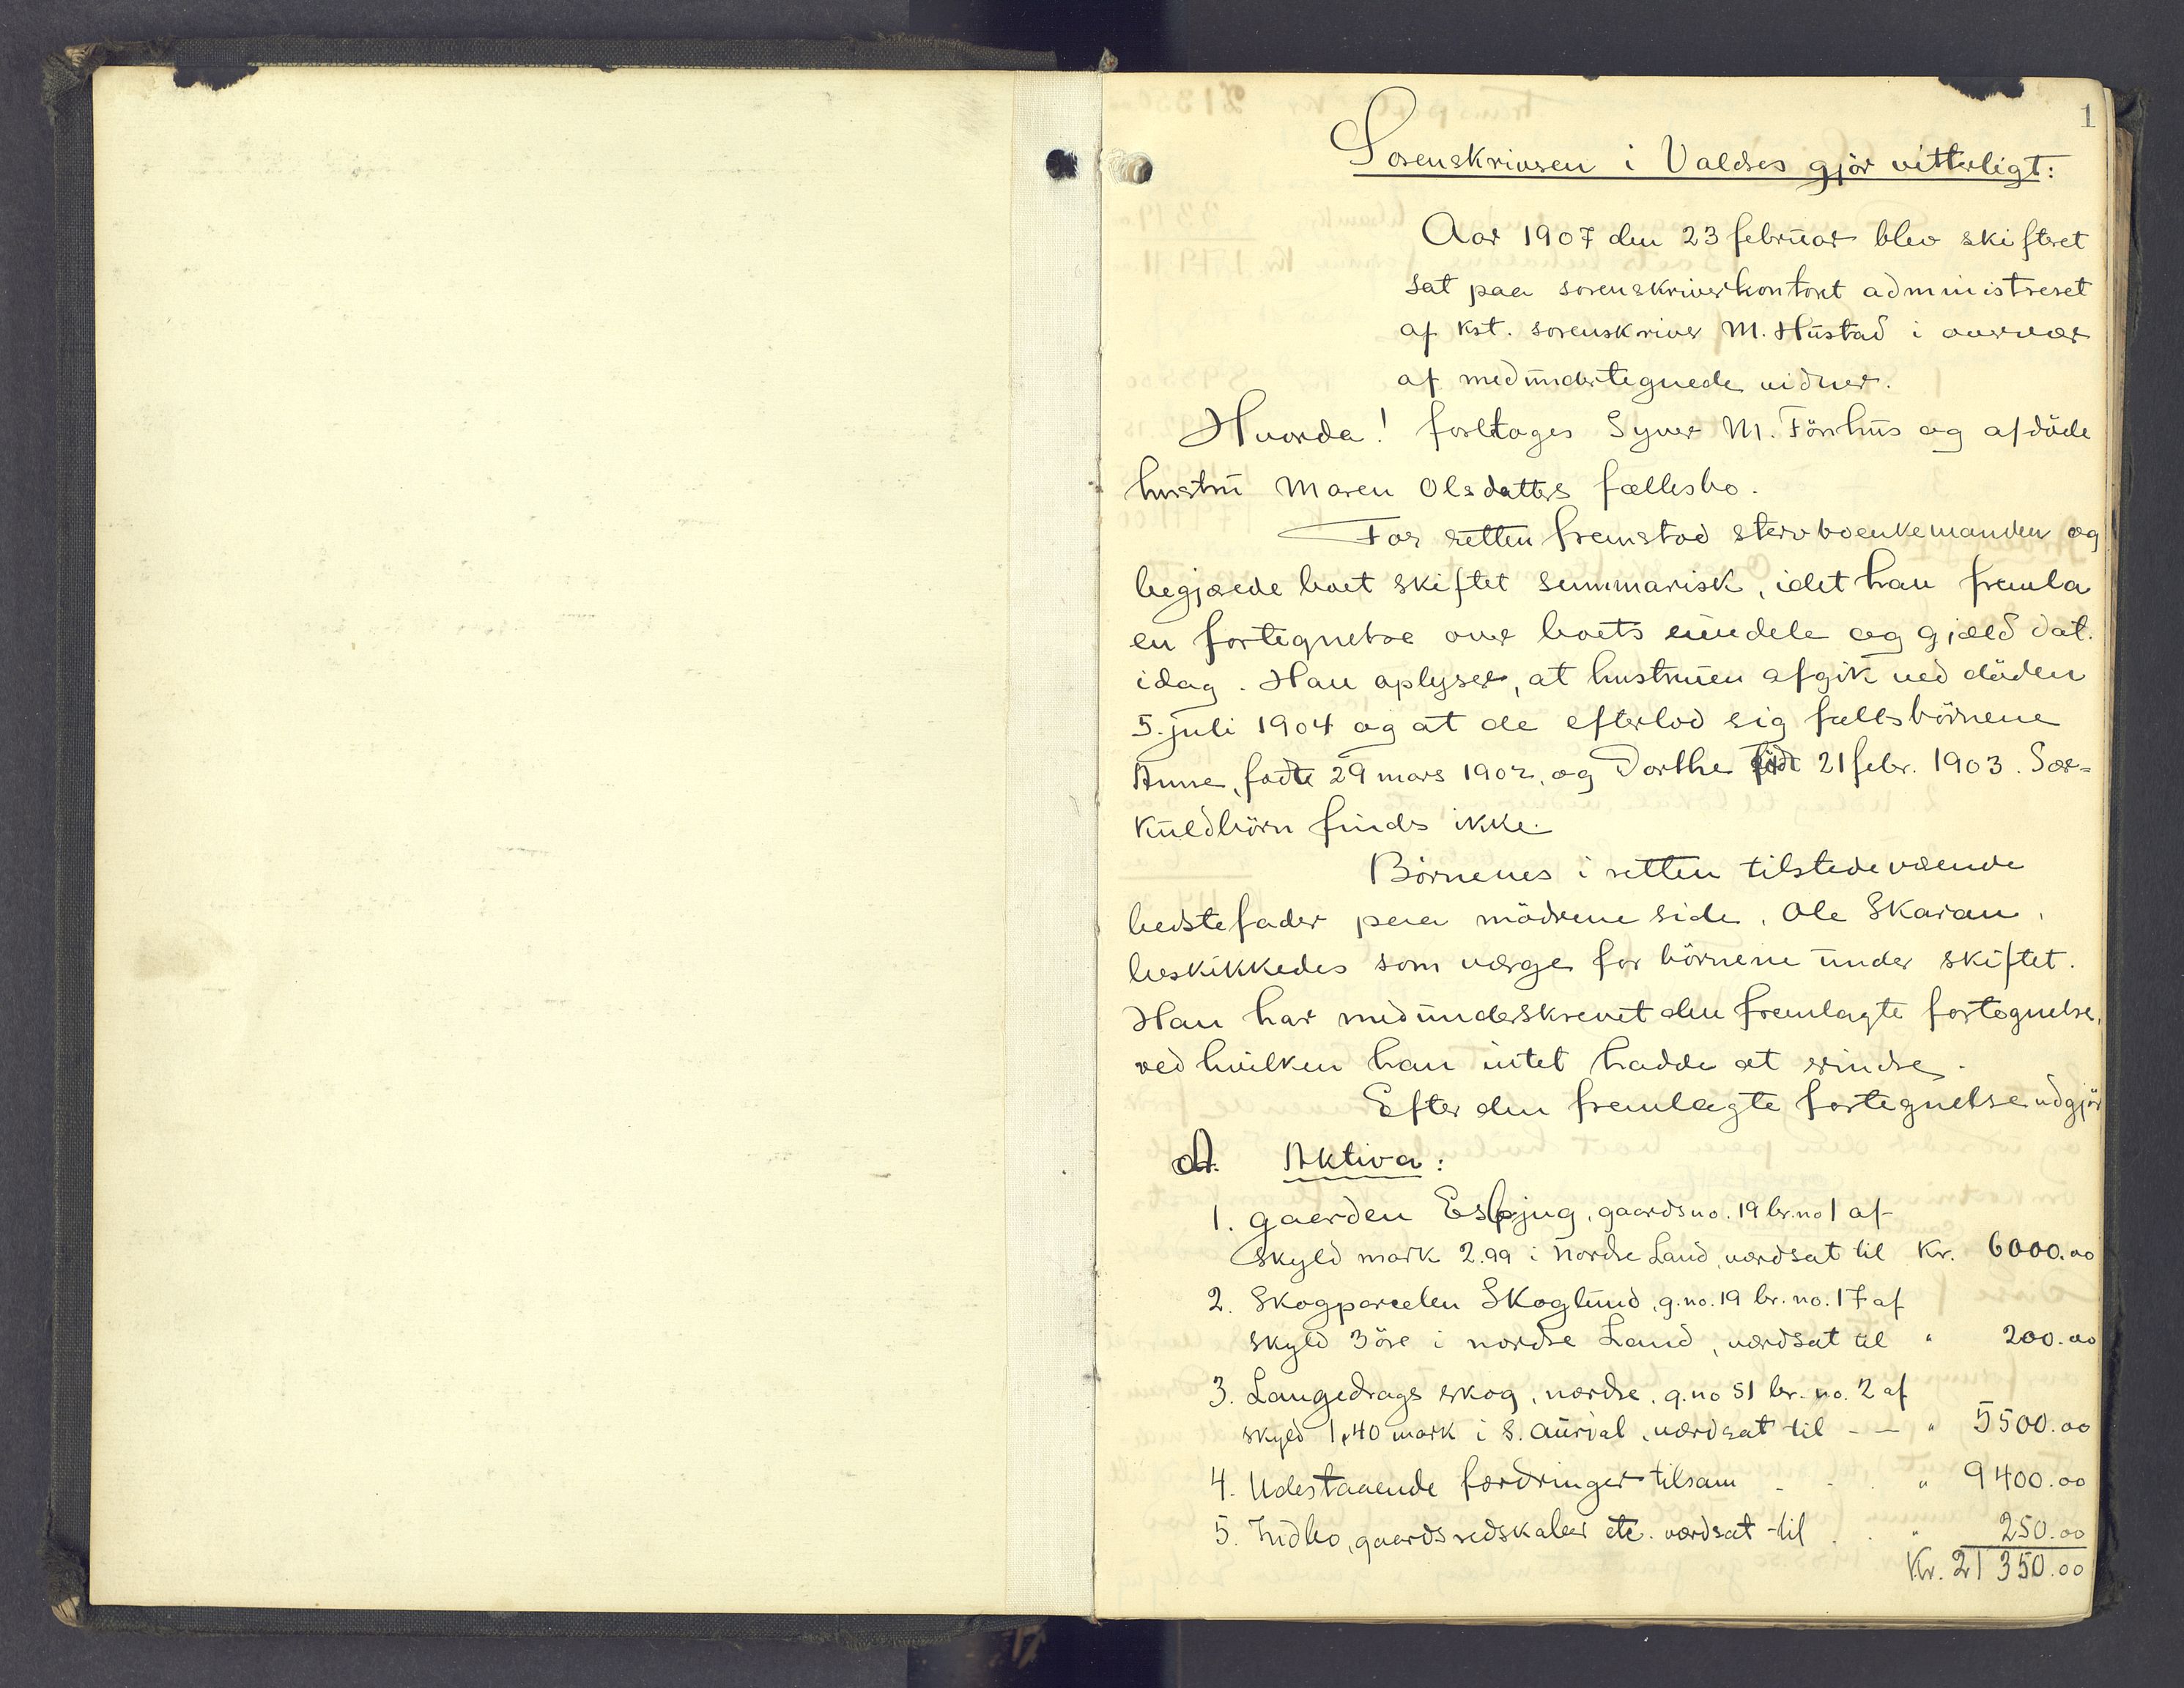 1
Sorenskriveren i Valdres gjör vitterligt:
Aar 1907 den 23 februar blev skifteret
sat paa sorenskriverkontoret administreret
af kst. sorenskriver M. Hustad i overvær
af medundertegnede vidner.
Hvorda! foretages Syver M. Förshus og afdöde
hustru Maren Olsdatters fællesbo.
For retten fremstod stervboenkemanden og
begjærede boet skiftet summarisk, idet han fremla
en fortegnelse over boets eiendele og gjæld dat.
idag. Han oplyser, at hustruen afgik ved döden
5. juli 1904 og at de efterlod sig fællesbörnene
Anne, födte 29 mars 1902, og Dorthe födt 21 febr. 1903. Sær-
kuldbörn findes ikke.
Börnenes i retten tilstedeværende
bedstefader paa mödrene side, Ole Skaran,
beskikkedes som værge for börnene under skiftet.
Han har medunderskrevet den fremlagte fortegnelse,
ved hvilken han intet hadde at erindre.
Efter den fremlagte fortegnelse udgjör
A. Aktiva:
1. gaarden Esbjug, gaardsno. 19 br.no 1 af
skyld mark 2.99 i Nordre Land, værdsat til Kr. 6000.00
2. Skogparcelen Skoglund, g.no. 19 br. no. 17 af
skyld 3 öre i nordre Land, værdsat til " 200.00
3. Langedrags skog, nordre, g.no 51 br. no. 2 af
skyld 1,40 mark i S. Aurdal, værdsat til - — " 5500.00
4. Udestaaende fordringer tilsam . . . " 9400.00
5. Indbo, gaardsredskaber etc. værdsat til . . " 250.00
Kr. 21 350.00